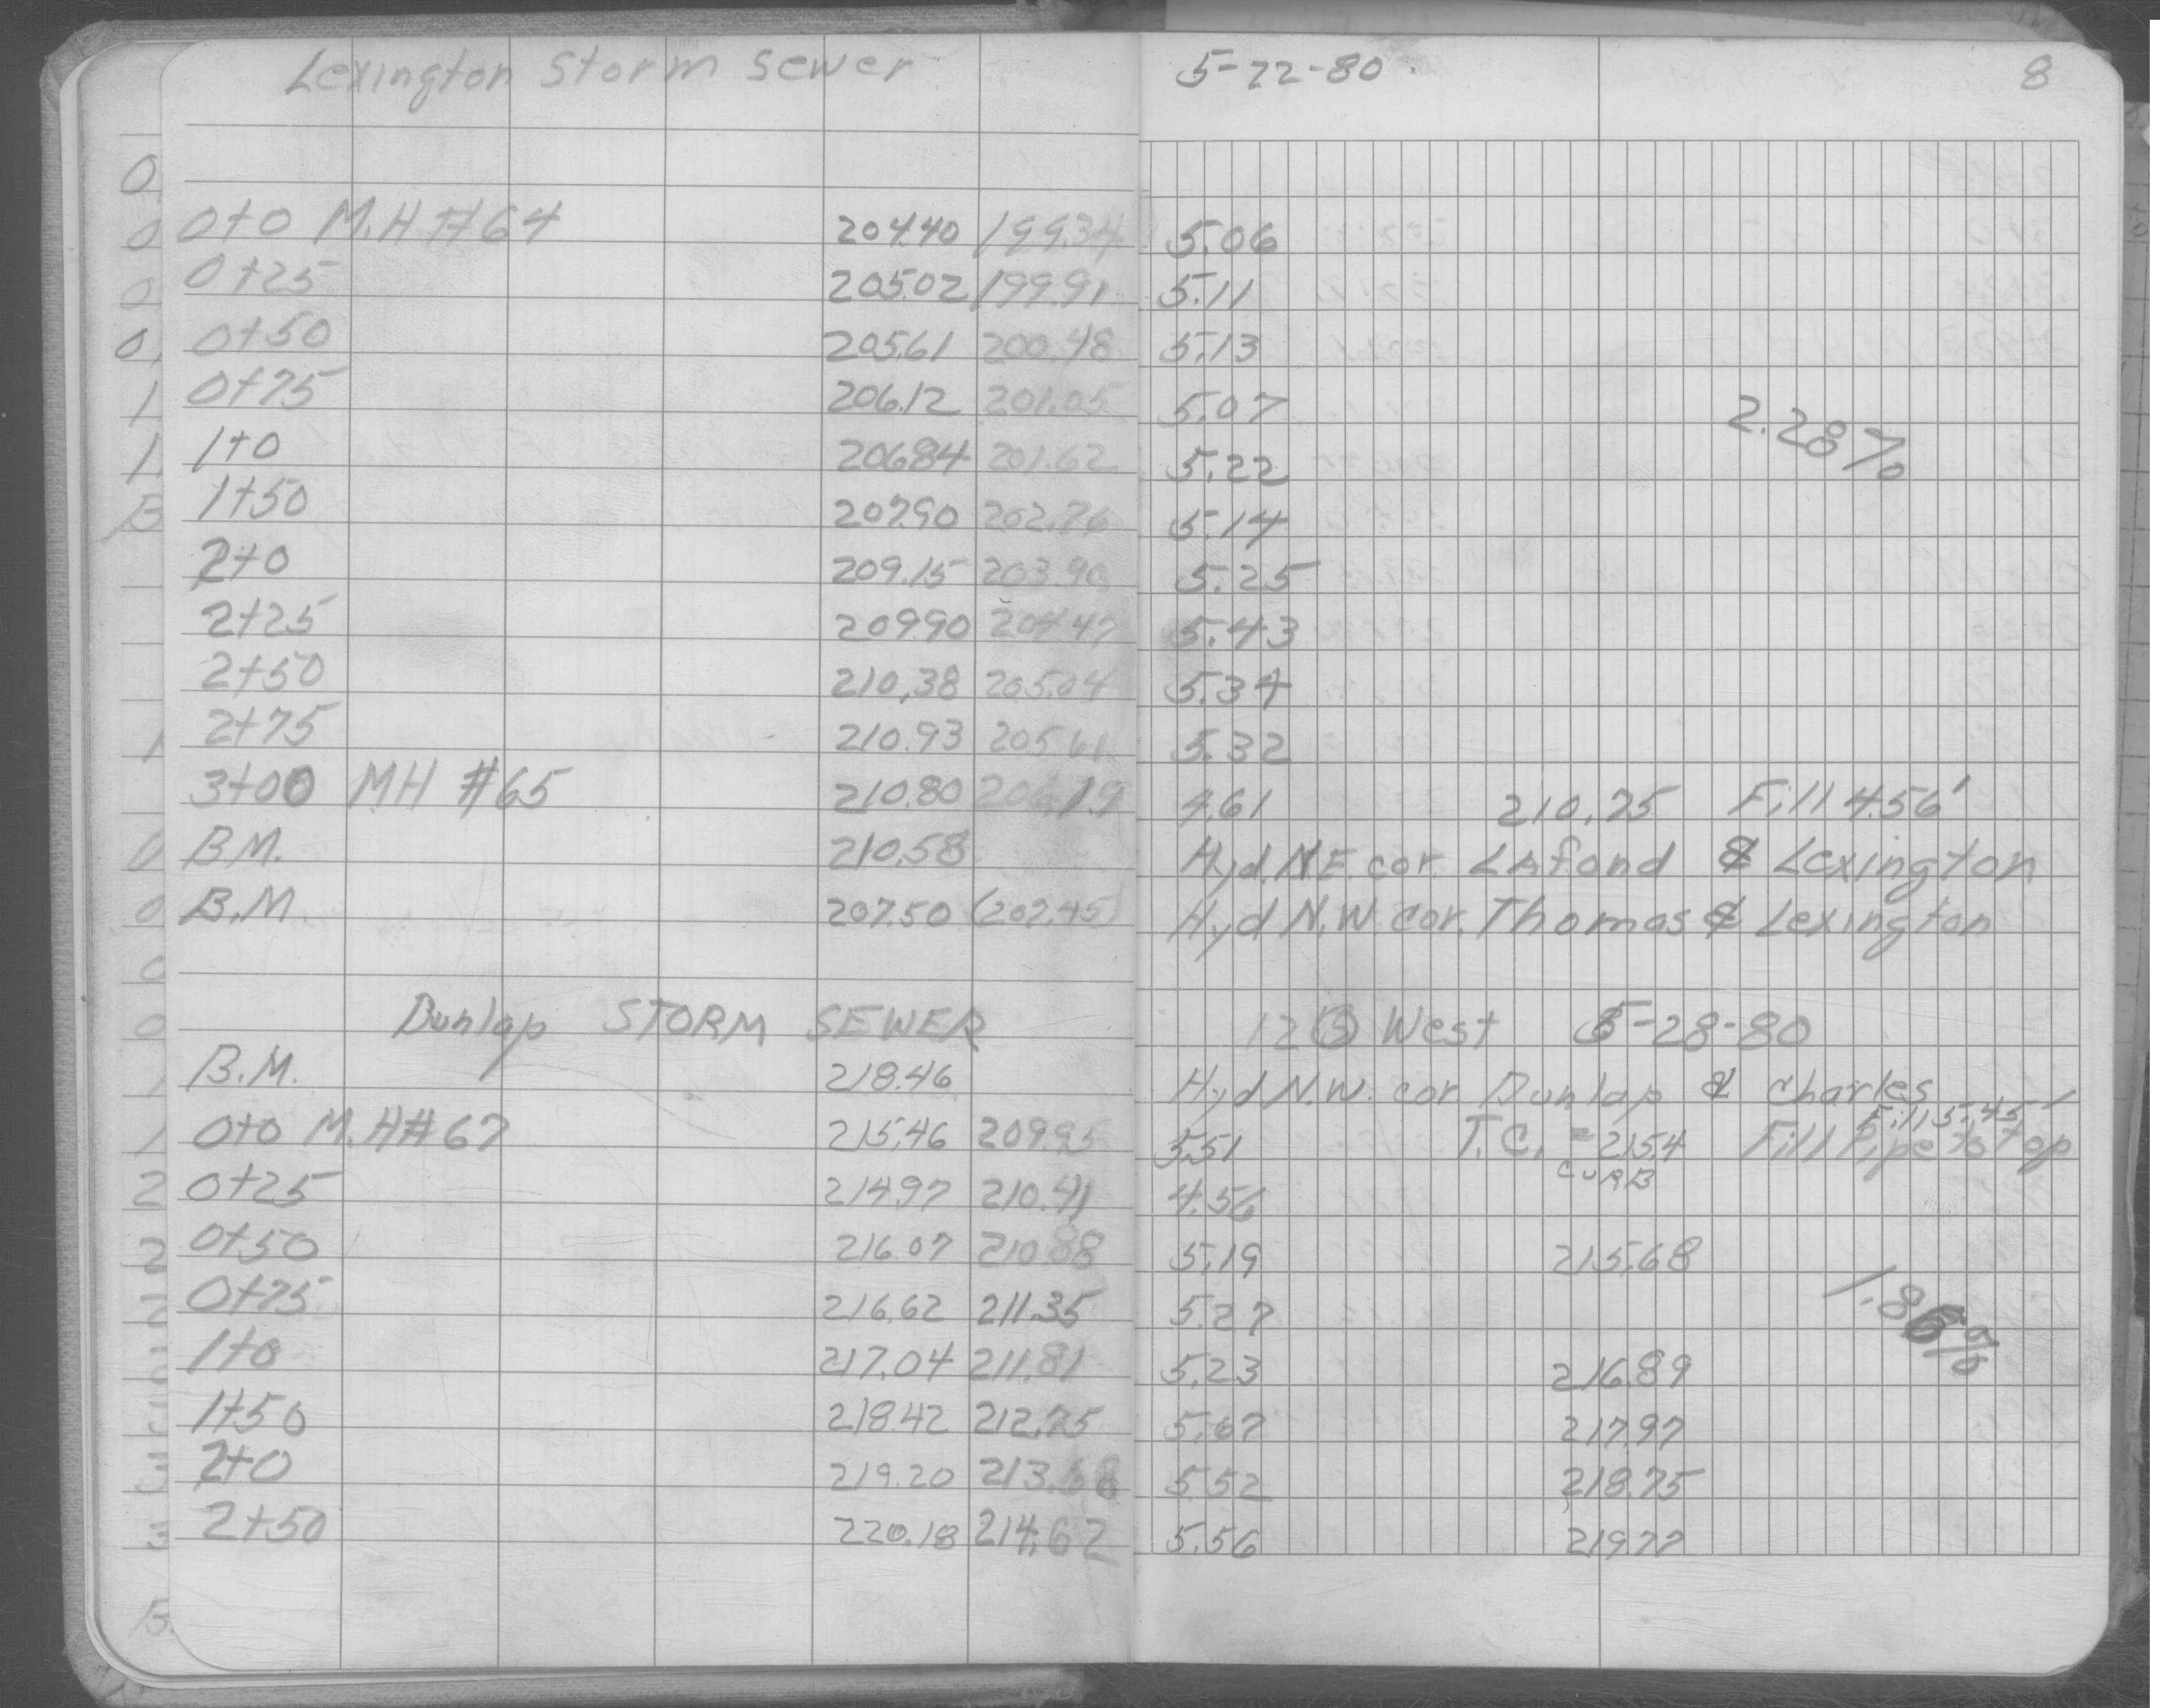 Lexington Storm Sewer 5-22-80 8
0+0 M.H #64 204.40 199.34 5.06
0+25 205.02 199.91 5.11
0+50 205.61 200.48 5.13
0+75 206.12 201.05 5.07
2.28%
1+0 206.84 201.62 5.22
1+50 207.90 202.76 5.14
2+0 209.15 203.90 5.25
2+25 209.90 204.47 5.43
2+50 210.38 205.04 5.34
2+75 210.93 205.61 5.32
3+00 MH #65 210.80 206.19 4.61 210.75 Fill 4.56'
B.M. 210.58 Hyd. N.E. cor. LAfond & Lexington
B.M. 207.50 (207.45) Hyd N.W. cor. Thomas & Lexington
Dunlap STORM SEWER West 5-28-80
B.M. 218.46 Hyd N.W. cor. Dunlap & Charles
Fill 5.45'
0+0 M.H #67 215.46 209.95 5.51 T.C. = 215.4 Fill Pipe to top
CURB
0+25 214.97 210.41 4.56
0+50 216.07 210.88 5.19 215.68
0+75 216.62 211.35 5.27
1.86%
1+0 217.04 211.81 5.23 216.89
1+50 218.42 212.75 5.67 217.97
2+0 219.20 213.68 5.52 218.75
2+50 220.18 214.62 5.56 219.77